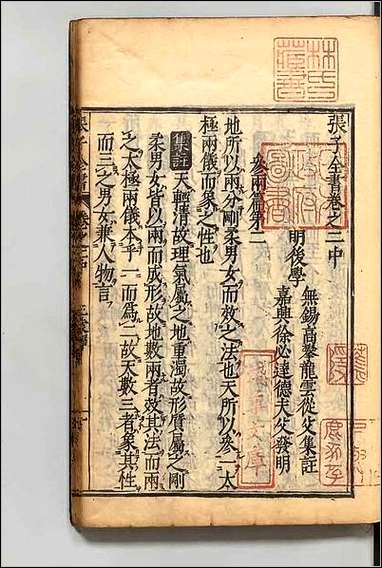 張子全書卷之二中
明後學
無錫高攀龍雲從父集註
嘉興徐必達德夫父發明
參兩篇第二
地所以兩分剛柔男女而效之法也天所以參一太
極兩儀而象之性也
集註 天輕清故理氣屬之地重濁故形質屬之剛
柔男女皆以兩而成形故地數兩者效其法而兩
之太極兩儀本乎一而爲二故天數三者象其性
而三之男女兼人物言
林氏藏書